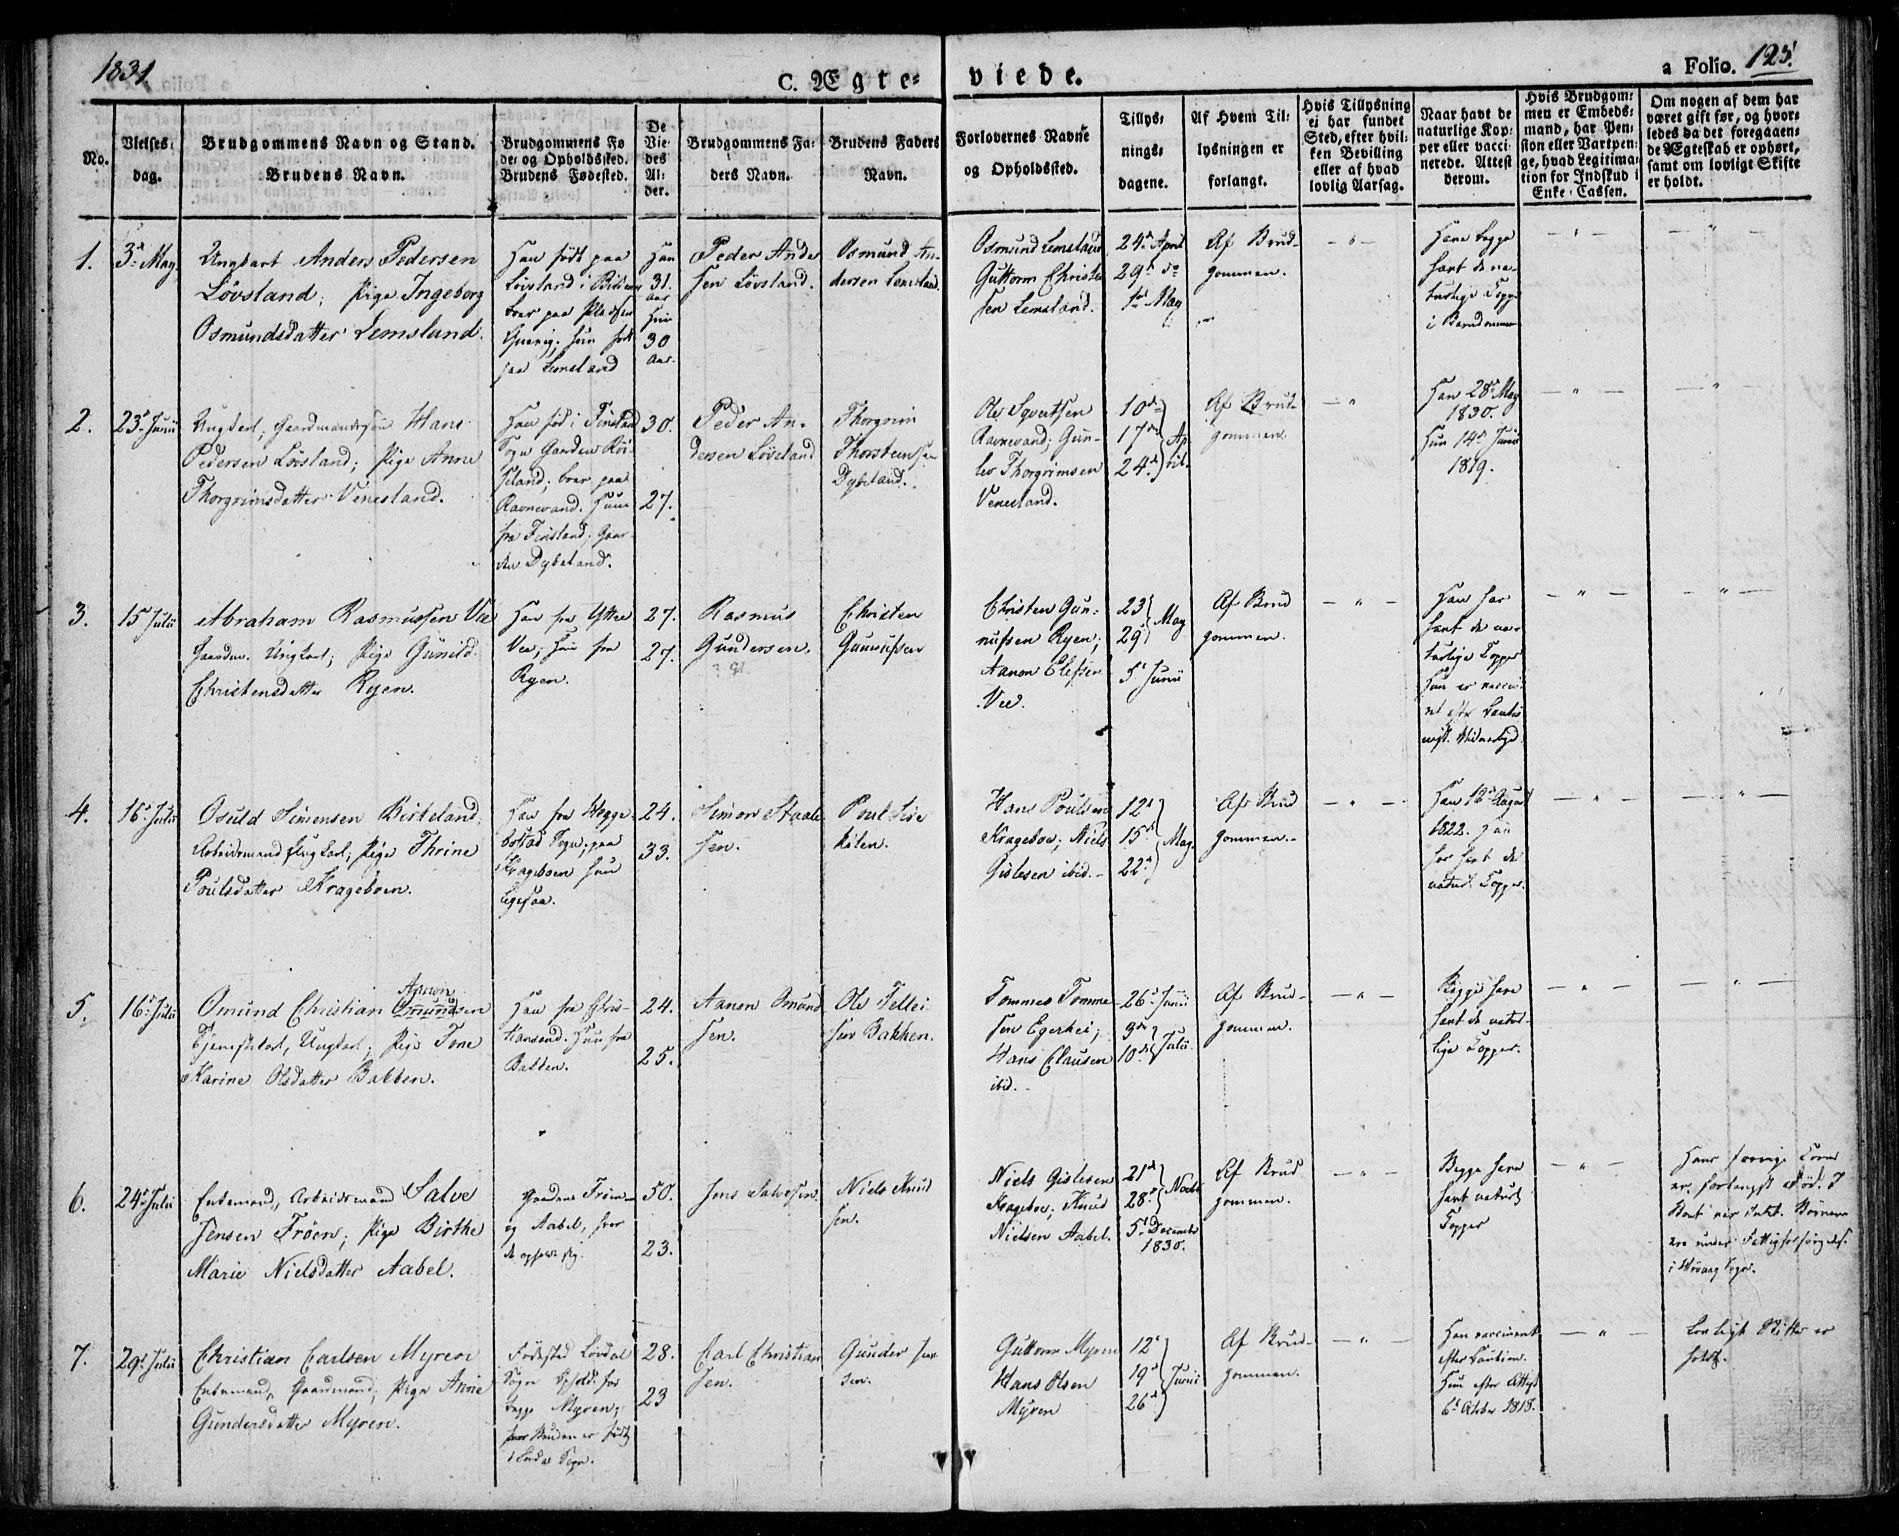 1831.
C. Ægte-
viede.
a Folio. 125.
No.
Vielses-
dag.
Brudgommens Navn og Stand.
Brudens Navn.
Brudgommens Fø
de- og Opholdssted.
Brudens Fødested.
De
Vie-
des
Al-
der.
Brudgommens Fa-
ders Navn.
Brudens Faders
Navn.
Forlovernes Navne
og Opholdssted.
Tillys-
nings-
dagene.
Af Hvem Til-
lysningen er
forlangt.
Hvis Tillysning
ei har fundet
Sted, efter hvil-
ken Bevilling
eller af hvad
lovlig Aarsag.
Naar havt de
naturlige Kop-
per eller vacci-
nerede. Attest
derom.
Hvis Brudgom-
men er Embeds-
mand, har Pen-
sion eller Vartpen-
ge, hvad Legitima-
tion for Indskud i
Enke-Cassen.
Om nogen af dem har
været gift før, og hvor-
ledes da det foregaaen-
de Ægteskab er ophørt,
samt om lovligt Skifte
er holdt.
1.
3d May
Ungkarl Anders Pedersen
Lövsland; Pige Ingeborg
Osmundsdatter Lemsland.
Han født paa
Lövsland i
paa
Hun født
paa Lemsland
Han
31.
Aar
Hun
30
Aar.
Peder Ander
sen Lövsland.
Osmund An-
dersen Lemsland.
Osmund Lemsland
Guttorm Christen
sen Lemsland.
24d April
29d do
1ste May
Af Brud-
gommen.
Have begge
havt de na-
turlige Kopper
i Barndommen
2.
23d Junii
Ungkarl, Gaardmandssøn Hans
Pedersen Lövsland; Pige Anne
Thorgrimsdatter Venesland.
Han fød i Finsland
Sogn Gaarden
paa
Ravnevand. Hun
fra Finsland, Gaar-
den Dybeland.
30.
27.
Peder An-
dersen Lövsland
Thorgrim
Thorsteinsen
Dybeland.
Ole Syvertsen
Ravnevand; Gun-
lev Thorgrimsen
Venesland.
10de
17de
24d
Ap-
ril.
Af Brud-
gommen.
Han 28d May
1830.
Hun 14d Junii
1819.
3.
15 Julii
Abraham Rasmussen Vee
Ungkarl; Pige Gunild
Christensdatter Ryen.
Han fra Ytre
Vee; Hun fra
Ryen.
27.
27.
Rasmus
Gundersen.
Christen
Gunnufsen
Christen Gun-
nufsen Ryen;
Aanon Elefsen
Vee.
23
29
May
5d Junii
Af Brud
gommen.
Han har
havt de na-
turlige Kopper
Hun er vacci-
4.
16d Julii
Osuld Simensen Birkeland,
Arbeidsmand Ungkarl; Pige Thrine
Poulsdatter Krageboen.
Han fra Hegge-
bostad Sogn; paa
Krageboen Hun
ligesaa.
24.
33.
Simon Staale
sen.
Poul
Hans Poulsen
Krageboe; Niels
Gislesen ibid.
12d
15d
22d
May
Af Brud
gommen.
Han 16d August
1822. Hun
har havt de
naturl. Kopper.
5.
16d Julii
Omund Christian Omundsen
Aanon
Tjenestekarl, Ungkarl; Pige Tone
Karine Olsdatter Bakken.
Han fra Chris-
tiansand. Hun fra
Bakken.
24.
25.
Aanon Omund
sen.
Ole Tellef-
sen Bakken.
Tommes Tomme-
sen Egerhei;
Hans Clausen
ibid.
26d Junii
3de
10de
Julii
Af Brud-
gommen.
Begge have
havt de natur-
lige Kopper.
6.
24d Julii
Enkemand, Arbeidsmand Salve
Jensen Fröen; Pige Birthe
Marie Nielsdatter Aabel.
Gaardene Fröen
og Aabel, hvor
de opholde sig.
50.
23.
Jens Salvesen.
Niels Knud
sen.
Niels Gislesen
Krageboe; Knud
Nielsen Aabel.
21d
28d
Novbr
5d December
1830.
Af Brud
gommen.
Begge have
havt naturl.
Kopper
Hans forrige Kone
er forlængst død.
Boet var intet. Børnene
ere under Fattigforsørgelse
i Sogn.
7.
29d Julii
Christian Carlsen Myren
Enkemand, Gaardmand; Pige Anne
Gundersdatter Myren.
Fødested
Sogn Ophold. for
begge Myren;
Bruden er født
i Sogn.
28.
23
Carl Christian
sen.
Gunder
sen.
Guttorm Myren
Hans Olsen
Myren
12d
19d
26d
Junii
Af Brud-
gommen.
Han vaccineret
efter
Hun efter Attest
6d Octber 1818.
Lovligt Skifte er
holdt.